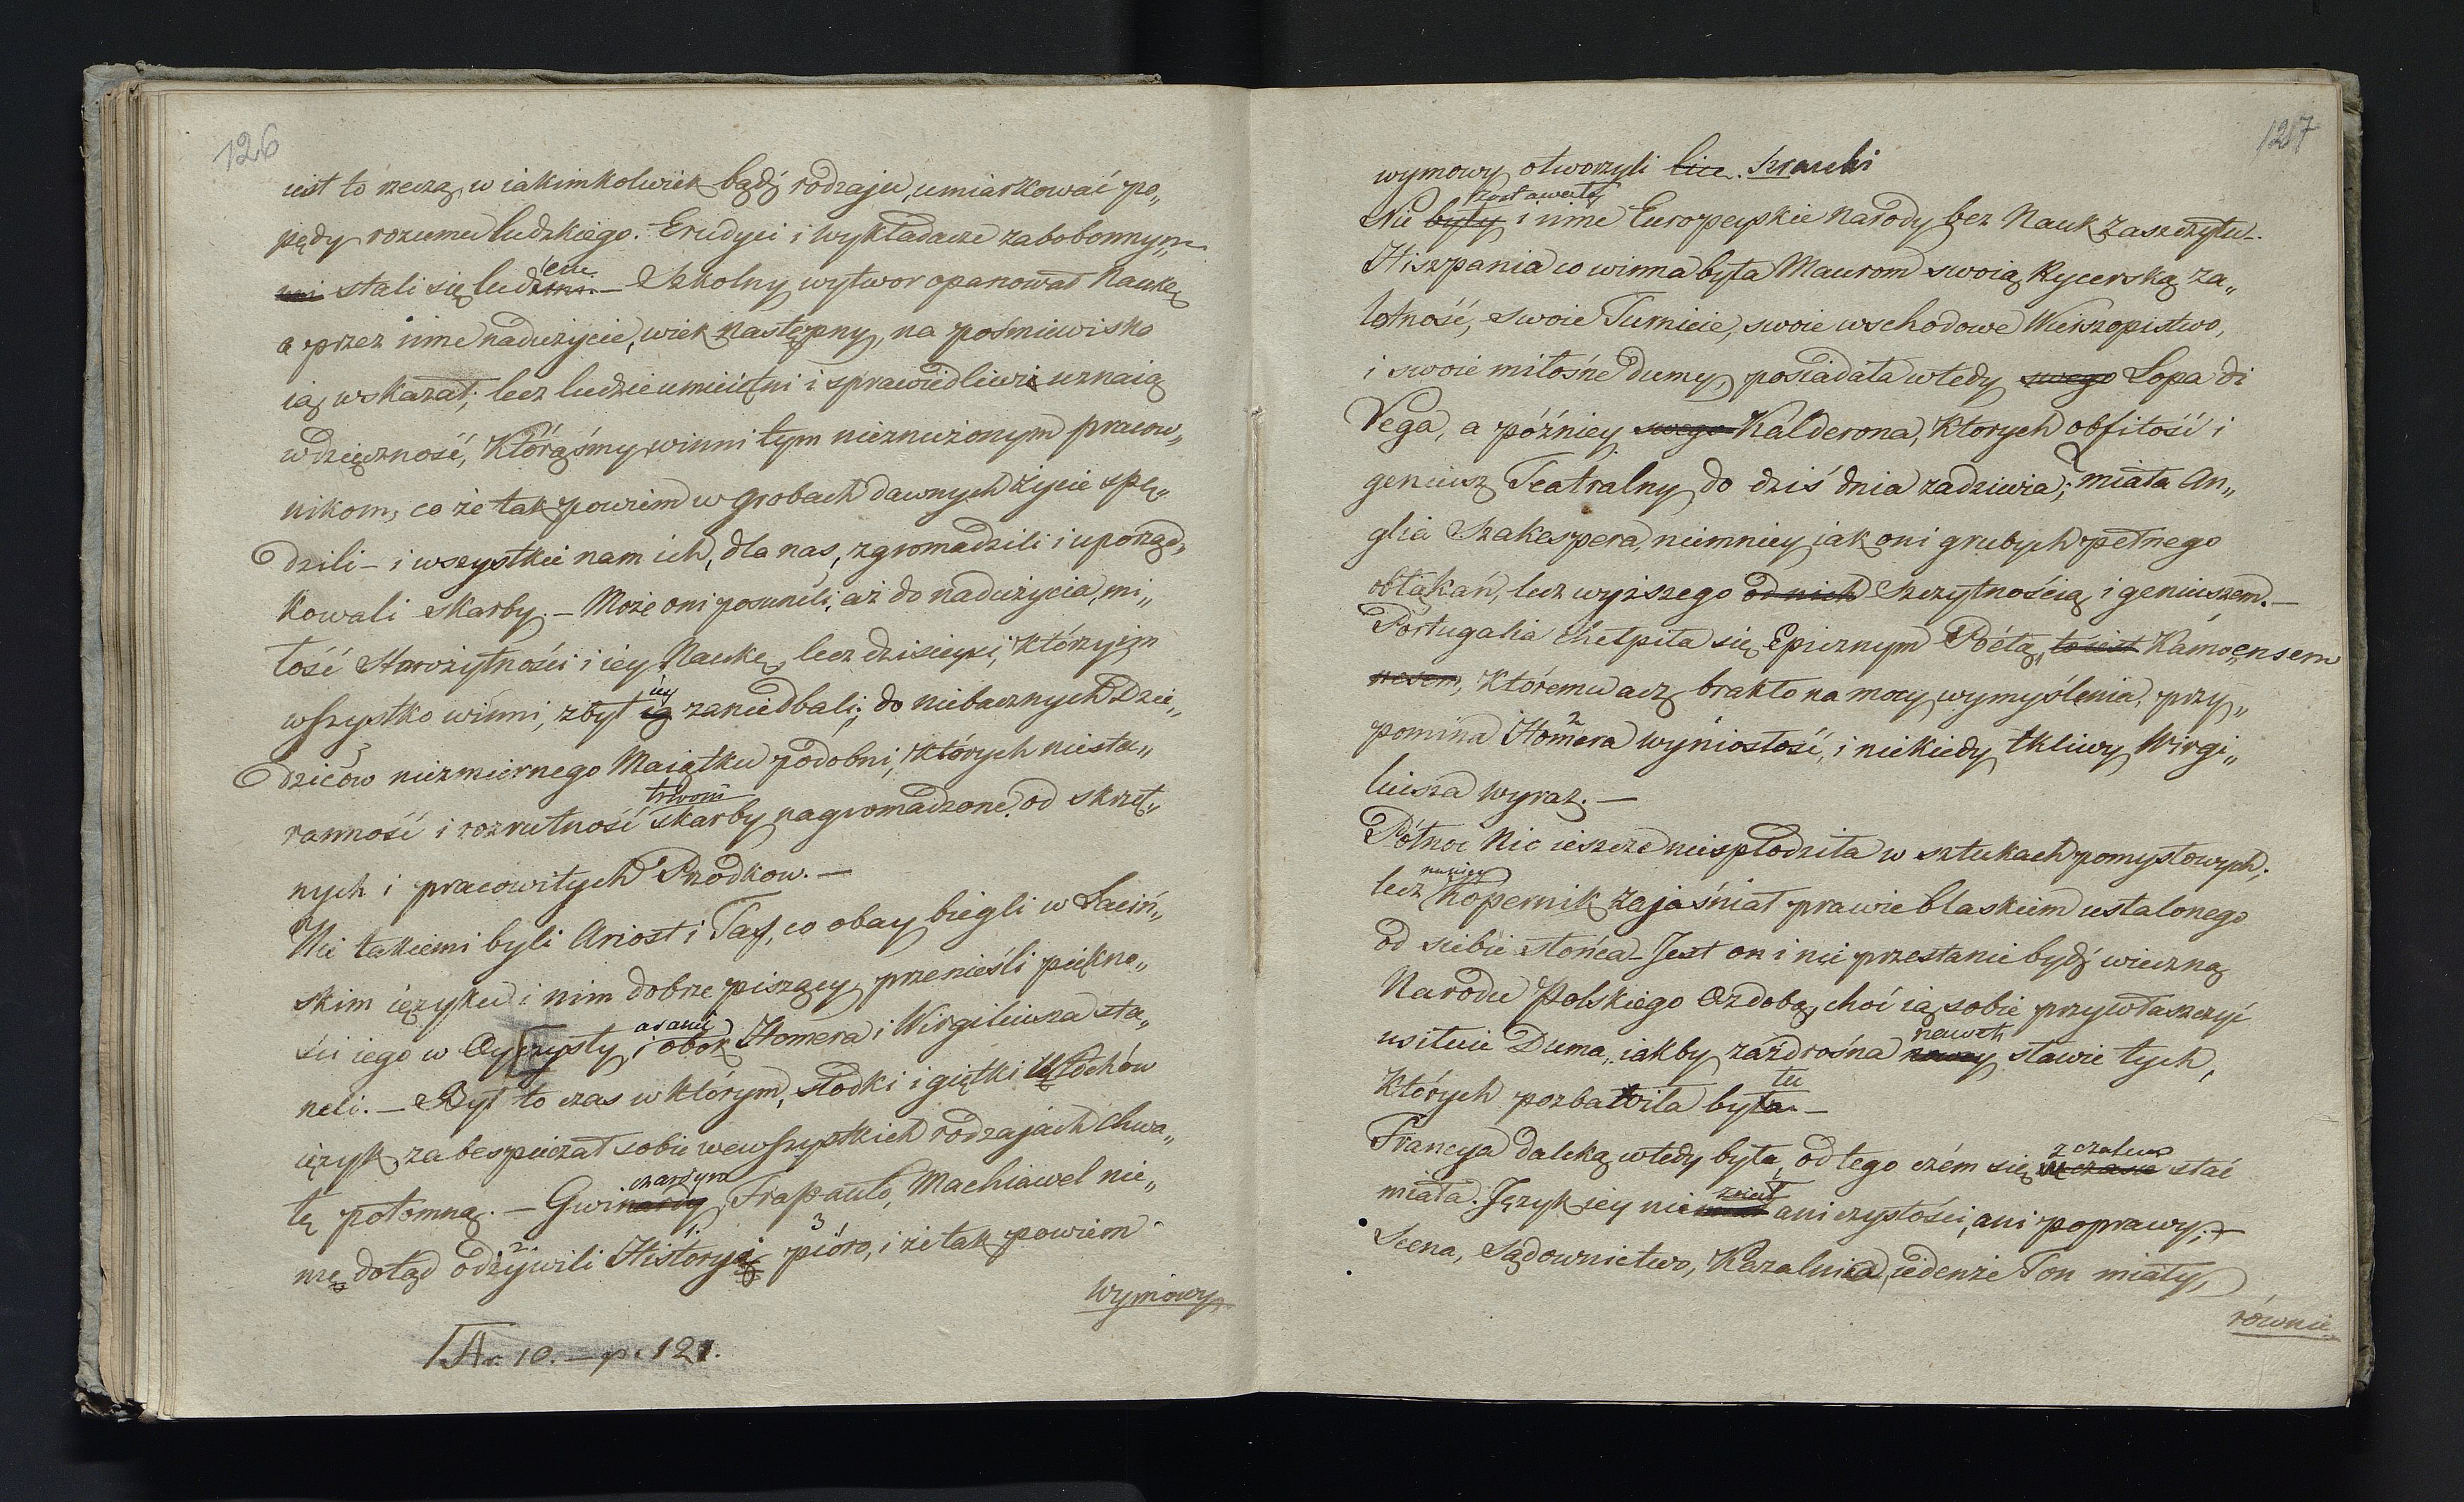 126
iest to rzeczą, w iakimkolwiek bądź rodzaju, umiarkować po„
pędy rozumu ludzkiego. Erudyci i wykładacze zabobonnym„
mi stali się ludźmi. – Szkolny wytwor opanował Naukę
a przez inne nadużycie, wiek następny, na pośmiewisko
ią wskazał; lecz ludzie umieiętni i sprawiedliwi uznaią
wdzięczność, którąśmy winni tym nieznużonym pracow„
nikom, co że tak powiem w grobach dawnych życie spę„
dzili – i wszystkie nam ich, dla nas, zgromadzili i uporząd„
kowali skarby. – Może oni posunęli, aż do nadużycia, mi„
łość Starożytności i iey Naukę, lecz dzisieysi, którzy jey
wszystko winni, zbyt ią iey zaniedbali; do niebacznych Dzie„
dziców niezmiernego Maiątku podobni, których niesta„
ranność i rozrutność trwoni skarby nagromadzone od skrzęt„
nych i pracowitych Przodkow. –
Nie takiemi byli Ariost i Tass, co obay biegli w Łaciń„
skim ięzyku i nim dobrze piszący, przenieśli piękno„
ści iego w Oyczysty, i obok Homera i Wirgiliusza sta„
neli. – Był to czas w którym, słodki i giętki Włochów
ięzyk, zabespieczał sobie wewszystkich rodzajach chwa„
łę potomną. – Gwinardy chardyn, Frapaulo, Machiawel nie„
mę dotąd odżywili Historyi pióro, i że tak powiem
wymowy
Ar. 10. – p. 121.
127
wymowy otworzyli lice.
Nie były zostawały i inne Europeyskie Narody bez Nauk zaszczytu.
Hiszpania co winna była Maurom swoią Rycerską za„
lotność, swoie Turnieie, swoie wschodowe Wierszopistwo,
i swoie miłośne dumy, posiadała wtedy swego Lopa di
Vega, a późniey swego Kalderona, ktorych obfitość i
geniusz Teatralny do dziś dnia zadziwia; miała An„
glia Szakespera, niemniey iak oni grubych pełnego
obłąkań, lecz wyższego od nich Szczytnością i geniuszem. –
Portugalia chełpiła się Epicznym Poetą, to iest Kamoensem
nesem, któremu acz brakło na mocy wymyślenia, przy„
pomina Homera wyniosłość, i niekiedy tkliwy Wirgi„
liusza wyraz. –
Północ Nic ieszcze niespłodziła w sztukach pomysłowych;
lecz Kopernik zajaśniał prawie blaskiem ustalonego
od siebie słońca – Jest on i nie przestanie bydź wieczną
Narodu Polskiego Ozdobą, choć ią sobie przywłaszczyć
usiłuie Duma, iakby zaźdrośna nawet sławie tych,
których pozbawiła była. –
Francya daleką wtedy była, od tego czém się w czasie z czasem stać
miała. Język iey nie ani czystości, ani poprawy; –
Scena, Sądownictwo, Kazalnica, iedenże Ton miały,
równie